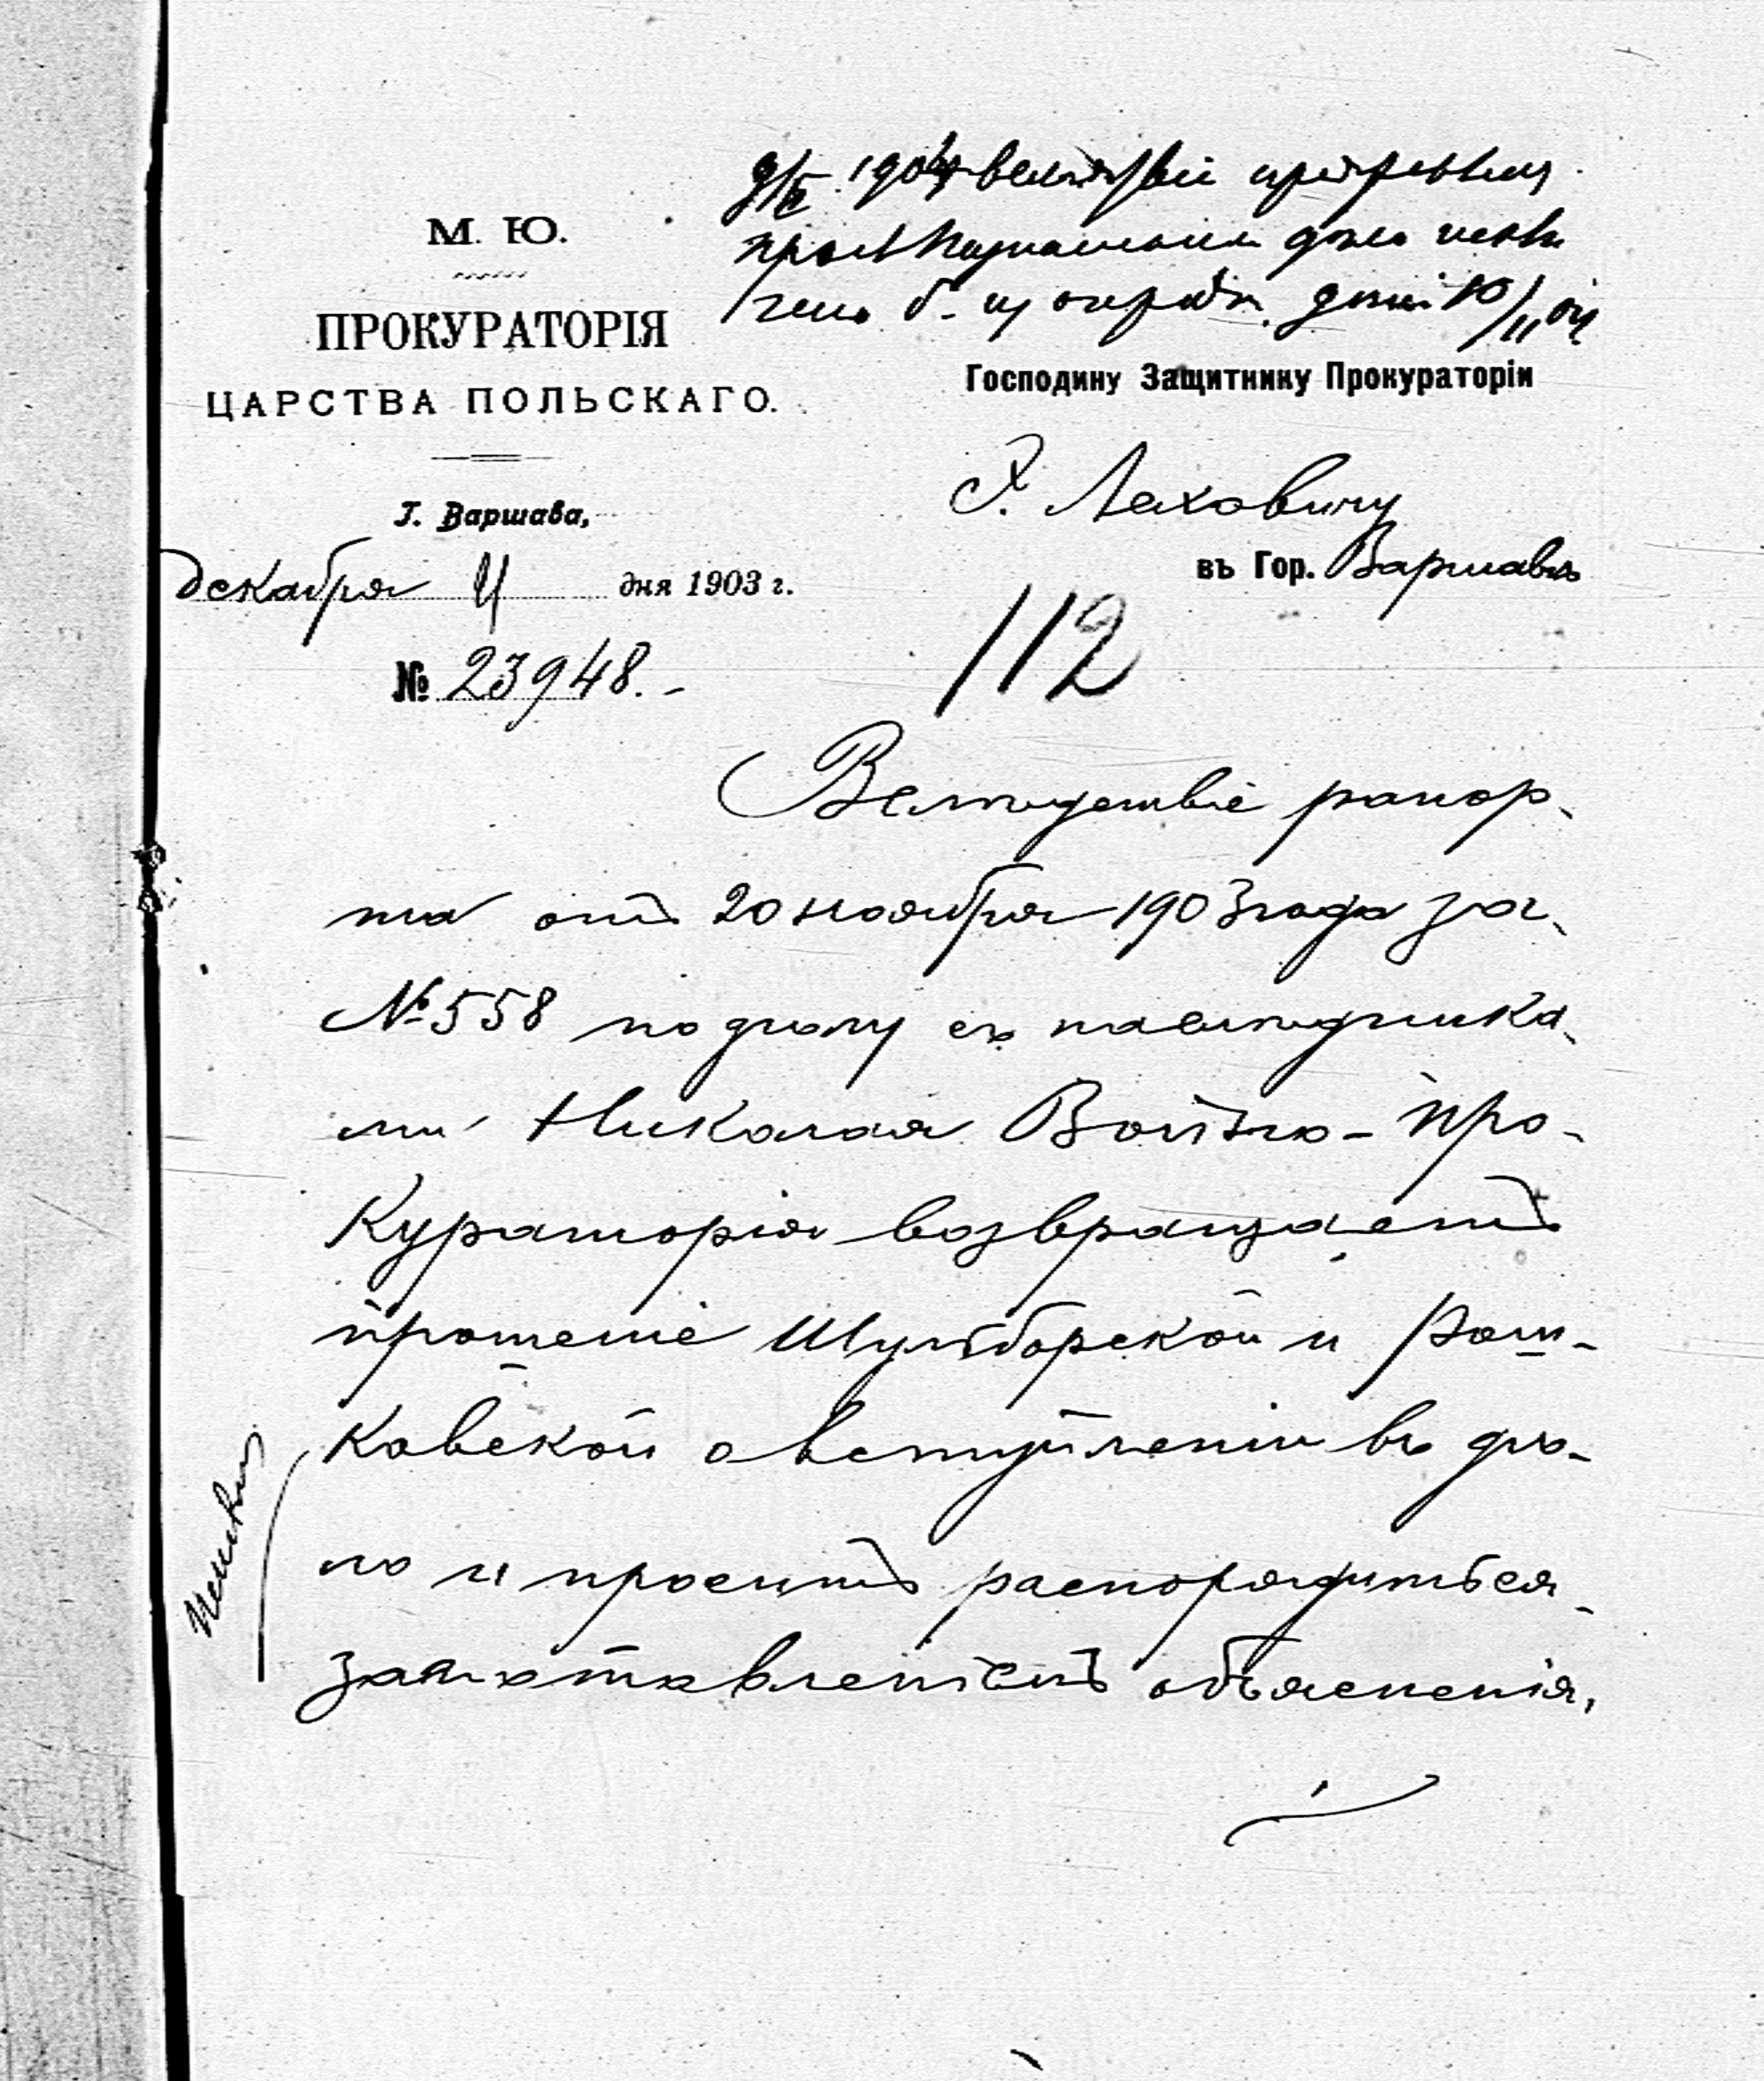 М. Ю.
ПРОКУРАТОРІЯ
ЦАРСТВА ПОЛЬСКАГО.
Г. Варшава,
Декабря 11 дня 1903 г.
№ 23948.-
1904
Господину Защитнику Прокураторіи
Г. Леховичу
въ Гор. Варшавѣ
112
Вслѣдствіе рапор-
та отъ 20 ноября 1903 года за
№ 558 по дѣлу съ наслѣдника-
ми Николая Войтю - Про-
кураторія возвращаетъ
прошеніе Шульборской и Рош-
ковской о вступленіи въ дѣ-
ло и проситъ распорядиться
объясненія,